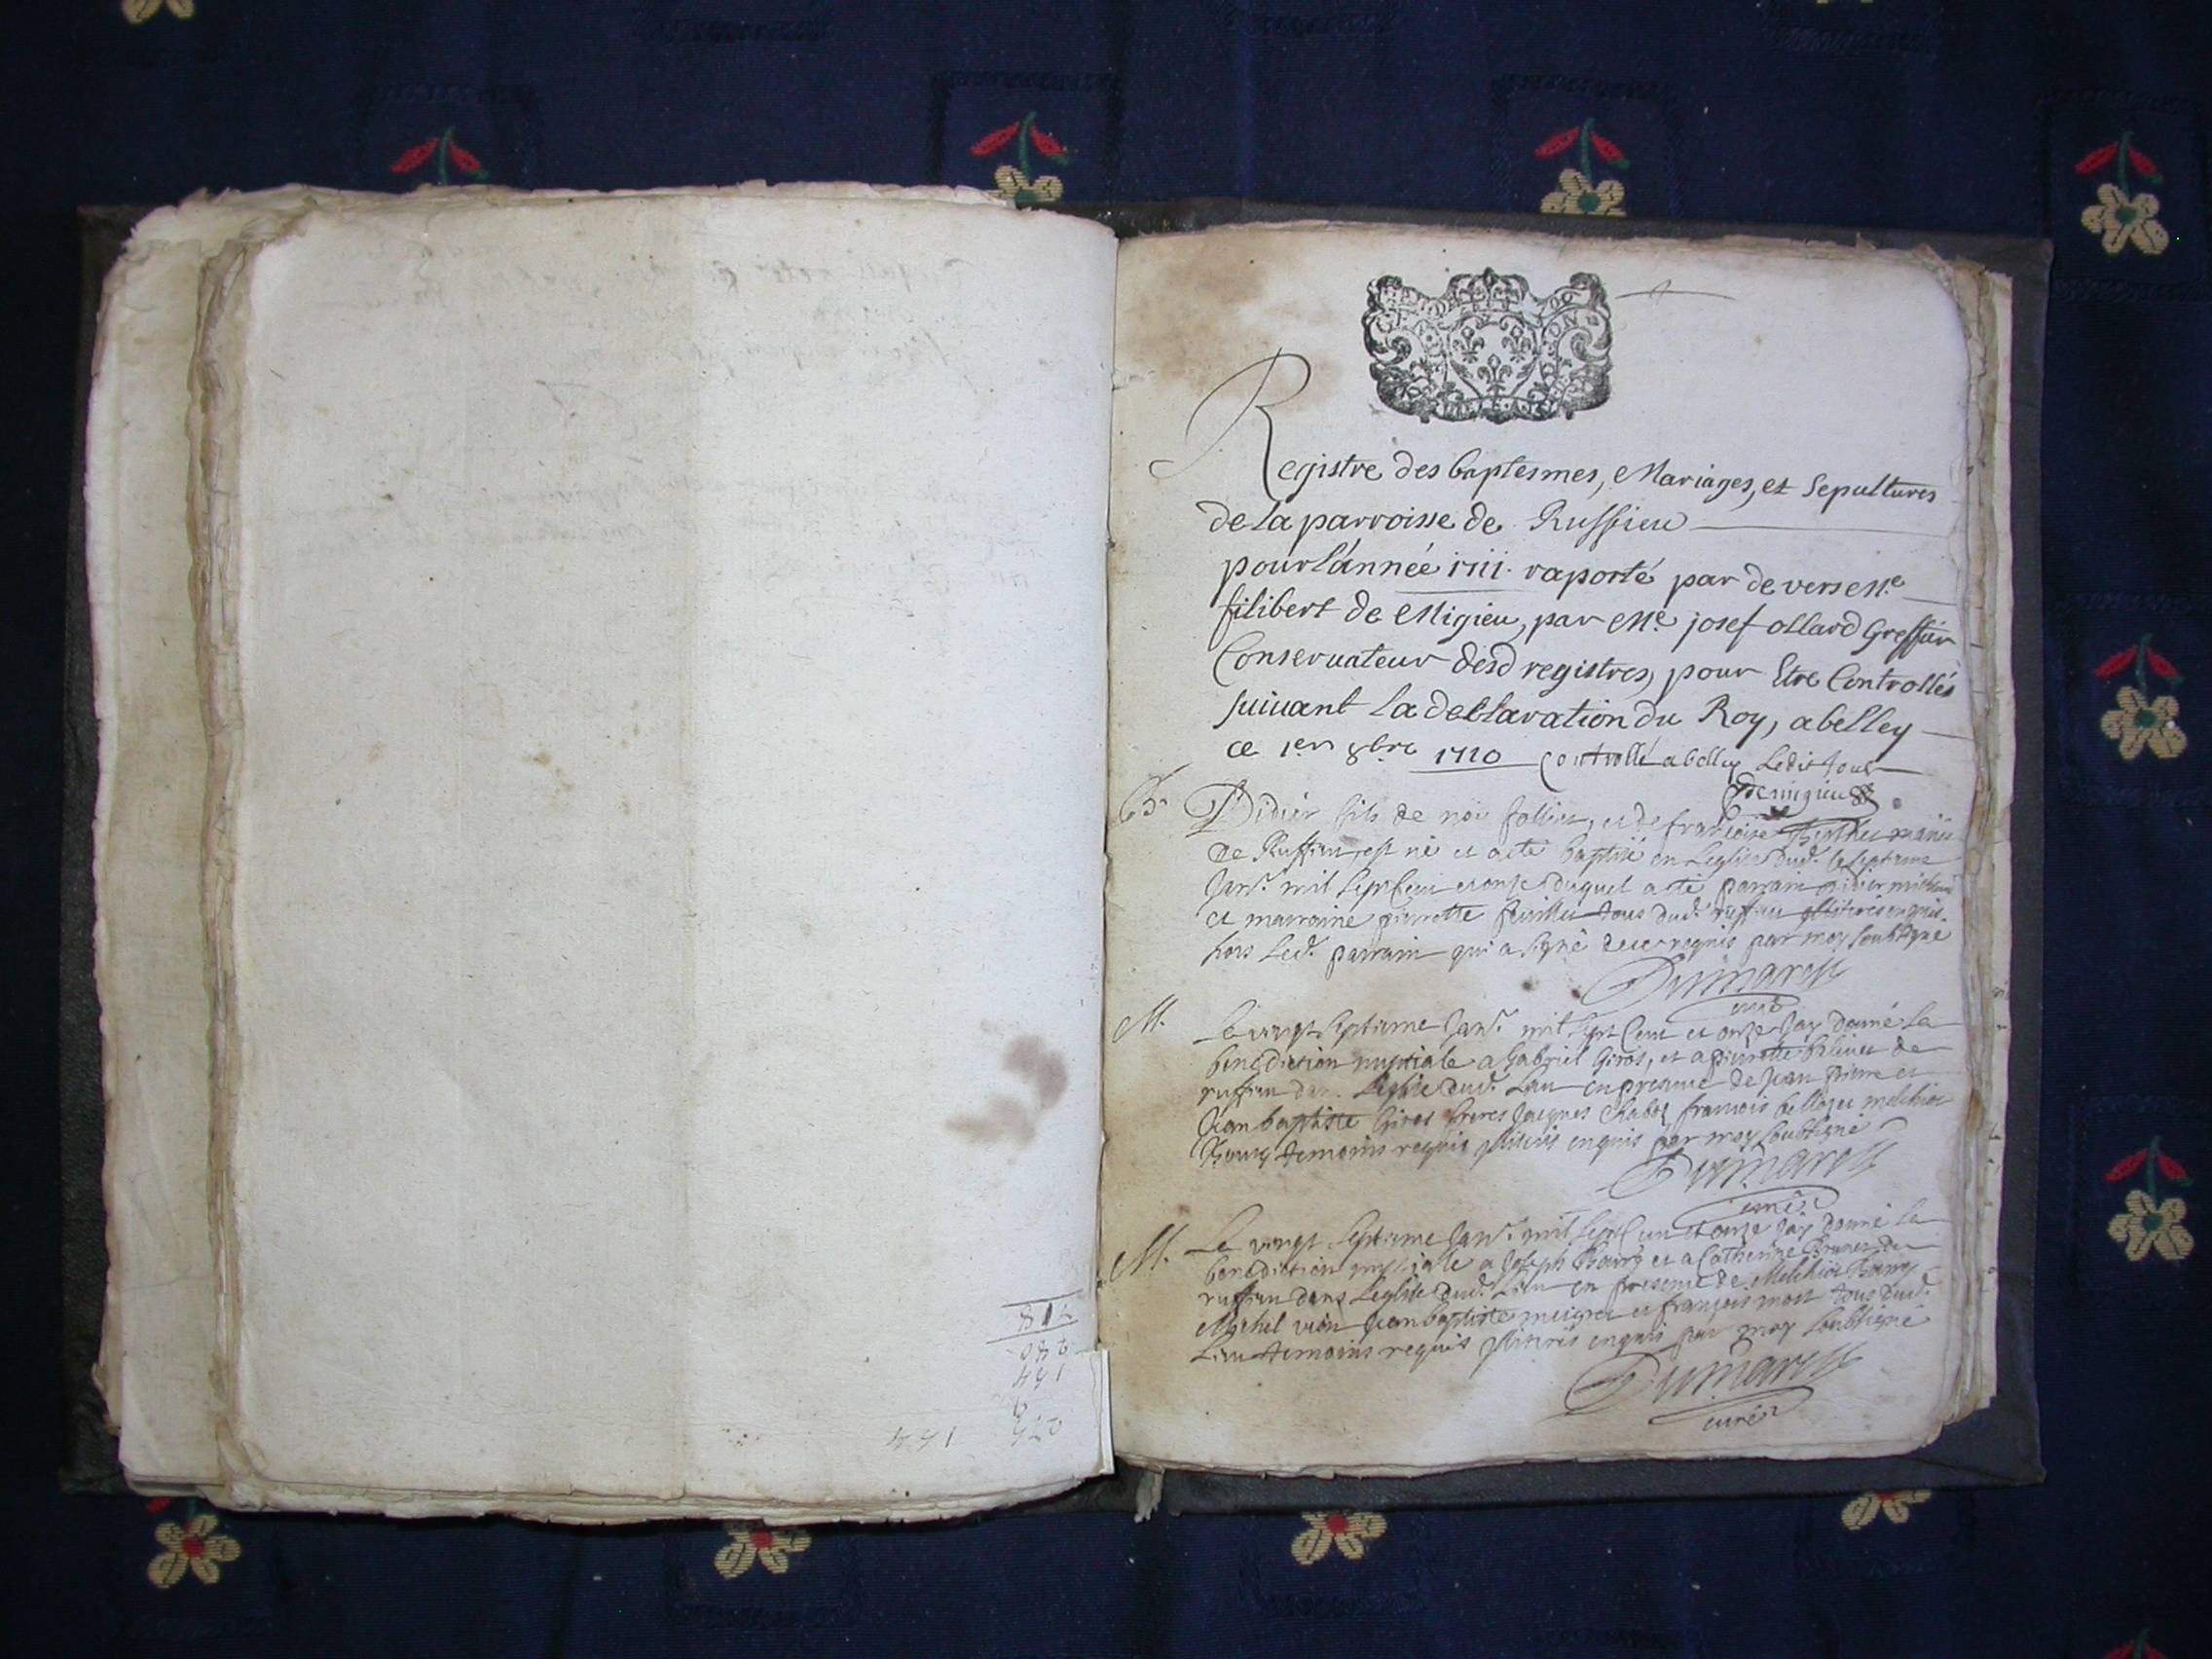 Registre des baptesmes, Mariages, et Sepultures
de la parroisse de Ruffieu
pour l'année 1711. raporté par devers Me
filibert de Migieu, par Me josef ollard Greffier
Conservateur desd registres, pour Etre Controllés
suivant la declaration du Roy, a belley
ce 1er 8bre 1710 Controllé a belley Ledit Jour
demigieu
B. Didier fils de noé follier, et de francoise mariés
de Ruffieu, est né et a eté baptisé en Leglise dud. le septieme
Janr. mil sept Cent et onze duquel a eté parrain didier
et marraine pierrette tous dud. ruffieu illiterés enquis.
hors Led. parrain qui a signé de ce requis par moy soubsigné
Dumarest
curé
M. Le vingt septieme Janr. mil sept Cent et onze Jay donné la
benediction nuptiale a Gabriel Giros, et a pierrette de
ruffieu dans Leglise dud. Lieu en presence de Jean pierre et
Jean baptiste Giros freres Jacques Chaboz francois melchior
Bourg temoins requis illiterés enquis par moy soubsigné
Dumarest
curé
M. Le vingt septieme Janr. mil sept Cent et onze Jay donné la
benediction nuptiale a Joseph Bourg et a Catherine Brunet de
ruffieu dans Leglise dud. Lieu en presence de Melchior Bourg
Michel Jean baptiste et françois tous dud.
Lieu temoins requis illiterés enquis par moy soubsigné
Dumarest
curé
718
280
154
9
275 154